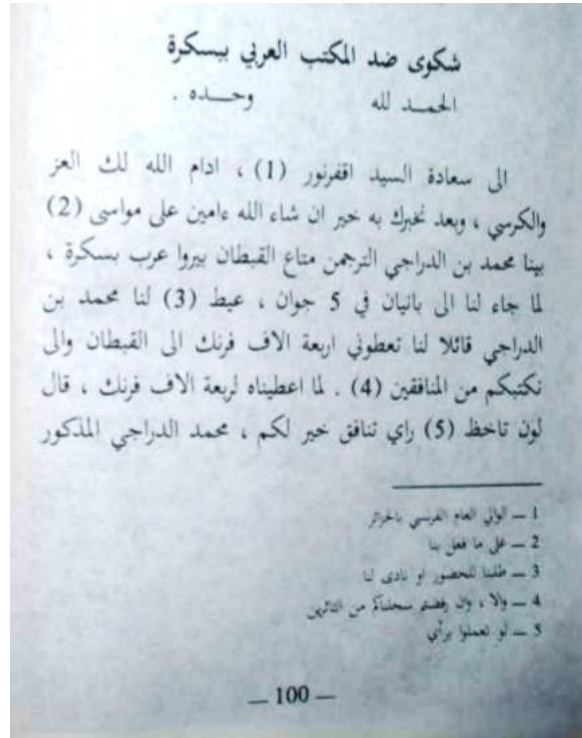 شكوى ضد المكتب العربي ببسكرة
الحمـد لله وحـــده .
الى سعادة السيد اقفرنور (1) ، ادام الله لك العز
والكرسي ، وبعد نخبرك به خير ان شاء الله ءامين على مواسى (2)
بينا محمد بن الدراجي الترجمن متاع القبطان بيروا عرب بسكرة ،
لما جاء لنا الى بانيان في 5 جوان ، عيط (3) لنا محمد بن
الدراجي قائلا لنا تعطوني اربعة الاف فرنك الى القبطان والى
نكتبكم من المنافقين (4) . لما اعطيناه لربعة الاف فرنك ، قال
لون تاخظ (5) راي تنافق خير لكم ، محمد الدراجي المذكور
1 ـ الوالي العام الفرنسي بالجزائر
2 ـ على ما فعل بنا
3 ـ طلبنا للحضور او نادى لنا
4 ـ والا ، وان رفضتم سجلناكم من الثائرين
5 ـ لو تعملوا برأي
ـ 100 ـ